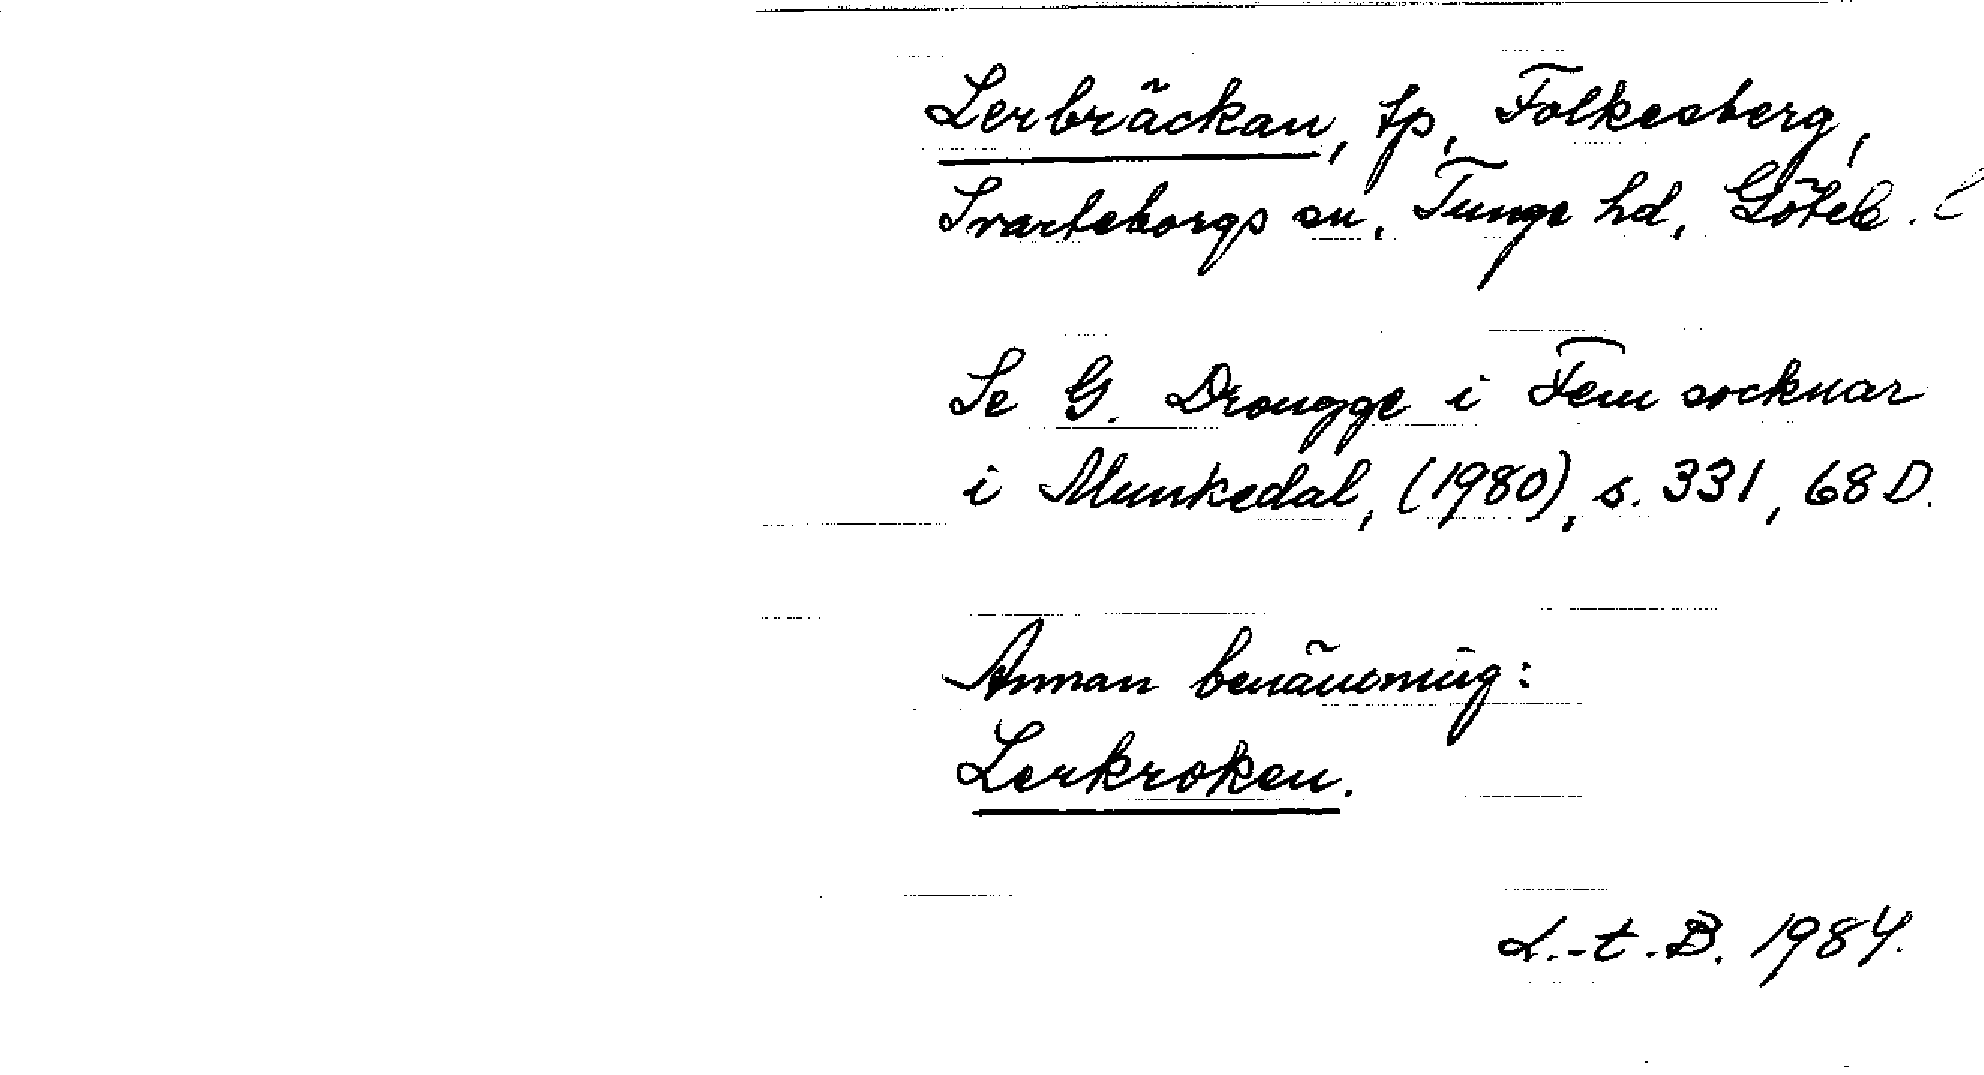 Lerbräckan, tp, Folkesberg,
Svarteborgs sn, Tunge hd, Göteb.
Se G. Drougge i Fem socknar
i Munkedal, (1980), s. 331, 68 D.
Annan benämning:
Lerkroken.
L.-t. B. 1984.